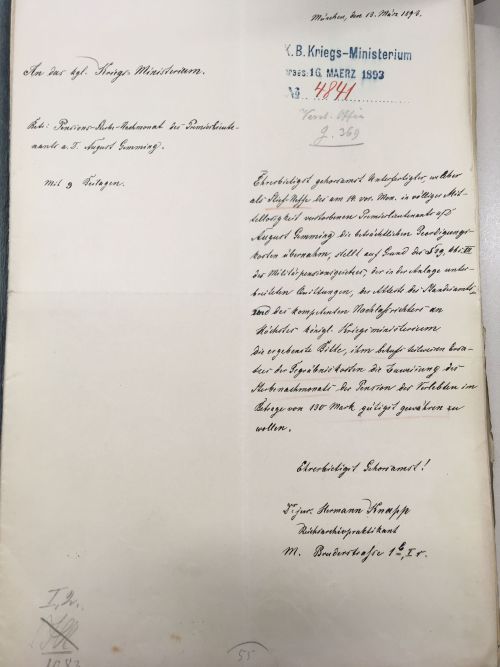 München, den 13. März 1893.
K. B. Kriegs-Ministerium
praes: 16. MAERZ 1893
No 4841
g. 369
An das kgl. Kriegs-Ministerium.
Betr: Pensions-Sterbe-Nachmonat des Premierlieute-
nants a. D. August Gemming.
Mit 9 Beilagen.
Ehrerbietigst gehorsamst Unterfertigter, welcher
als Stief-Neffe des am 14. vor. Mon. in völliger Mit-
tellosigkeit verstorbenen Premierlieutenants a/D
August Gemming die beträchtlichen Beerdigungs-
kosten übernahm, stellt auf Grund des § 9, Abs. III
des Militärpensionsgesetzes, der in der Anlage unter-
breiteten Quittungen, der Atteste des Standesamts,
und des kompetenten Nachlaßrichters an
Höchstes königl. Kriegsministerium
die ergebenste Bitte, ihm behufs teilweisen Ersa-
tzes der Begräbniskosten die Zuweisung des
Sterbenachmonats der Pension des Verlebten im
Betrage von 130 Mark gütigst gewähren zu
wollen.
Ehrerbietigst Gehorsamst!
Dr. jur. Hermann Knapp
Reichsarchivpraktikant
M. Bruderstrasse 1 I r.
55